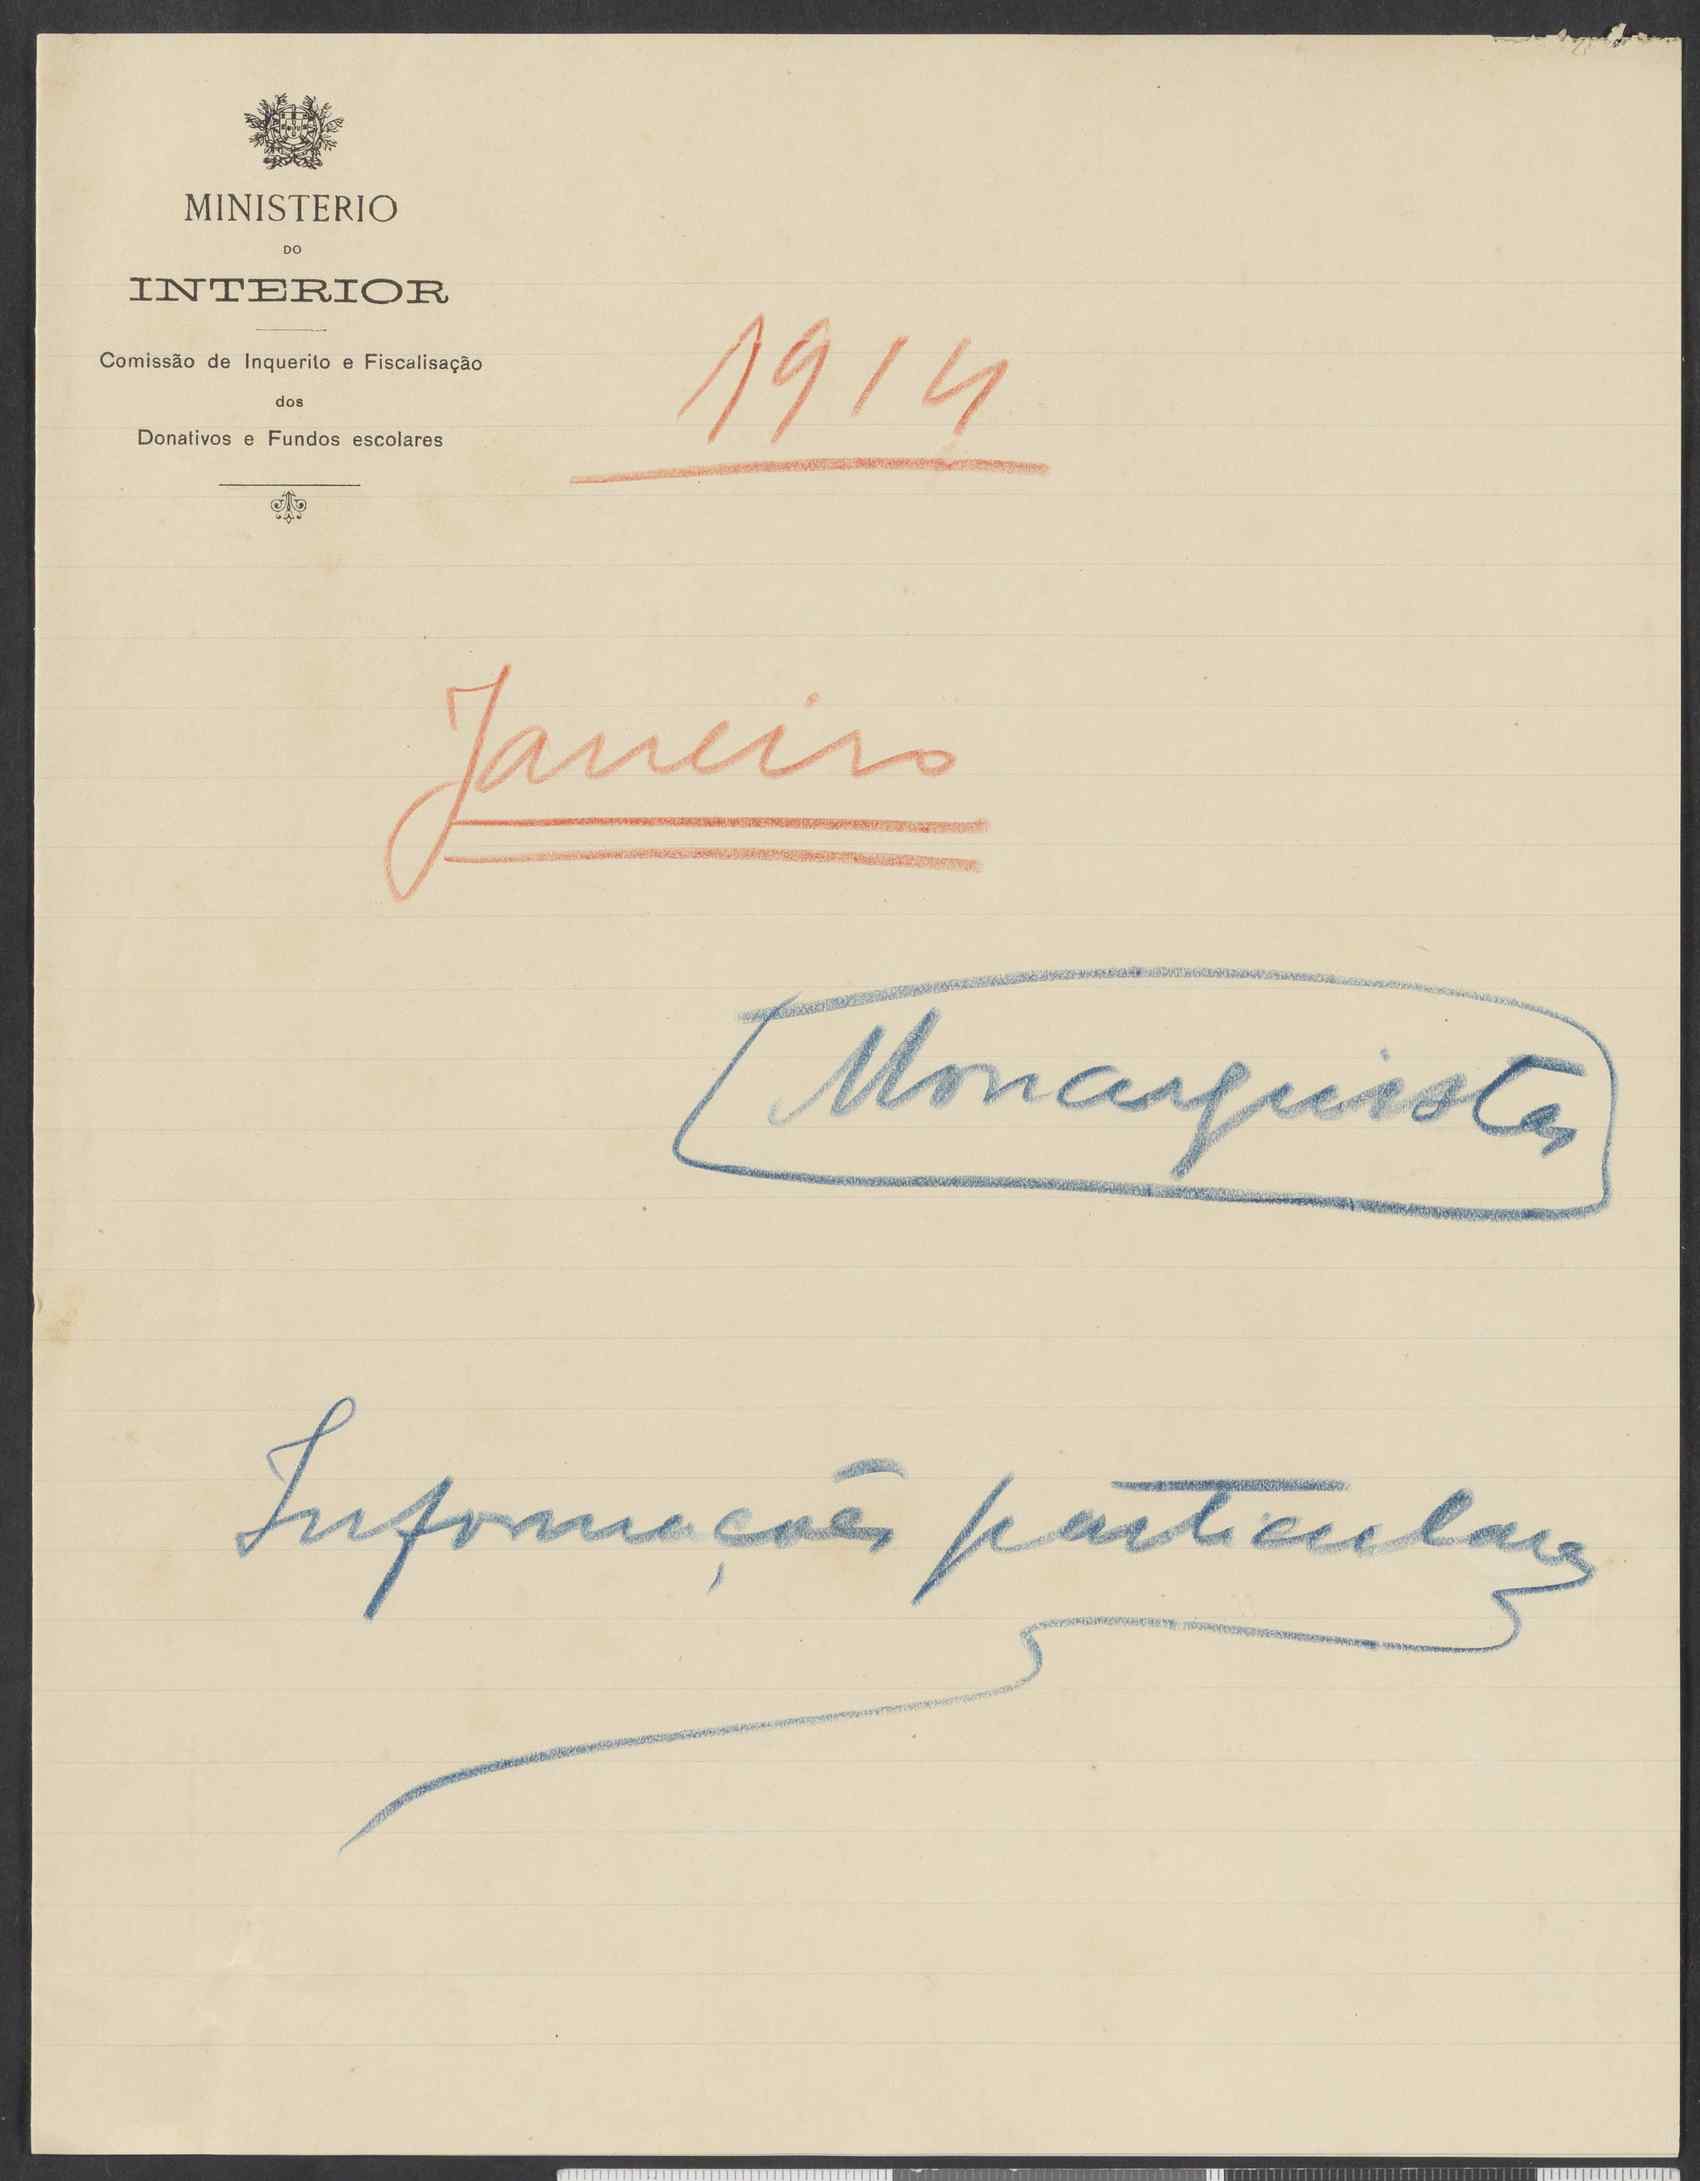 MINISTERIO
DO
INTERIOR
Comissão de Inquerito e Fiscalisação
dos
Donativos e Fundos escolares
1914
Janeiro
Monarquistas
Informações particulares